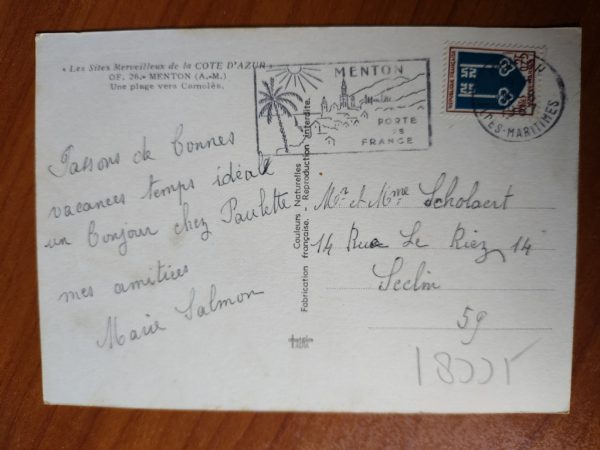 « Les Sites Merveilleux de la COTE D'AZUR »
OF. 26. - MENTON (A.-M.)
Une plage vers Carnolès.
MENTON
PORTE
DE
FRANCE
REPUBLIQUE FRANÇAISE
ES-MARITIMES
Passons de bonnes
vacances temps idéal
un bonjour chez Paulette
mes amitiées
Marie Salmon
Couleurs Naturelles
Fabrication française. - Reproduction interdite.
Mr et Mme Scholaert
14 Rue Le Riez 14
Seclin
59